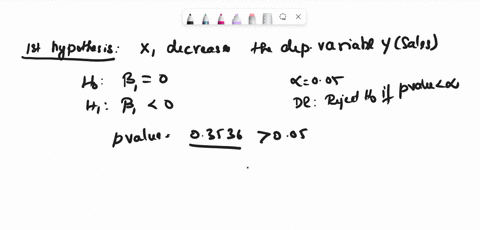 1st hypothesis: X₁ decrease the dep. variable Y (Sales)
H₀: β₁ = 0 α = 0.05
H₁: β₁ < 0 DR: Reject H₀ if pvalue < α
pvalue = 0.3536 > 0.05